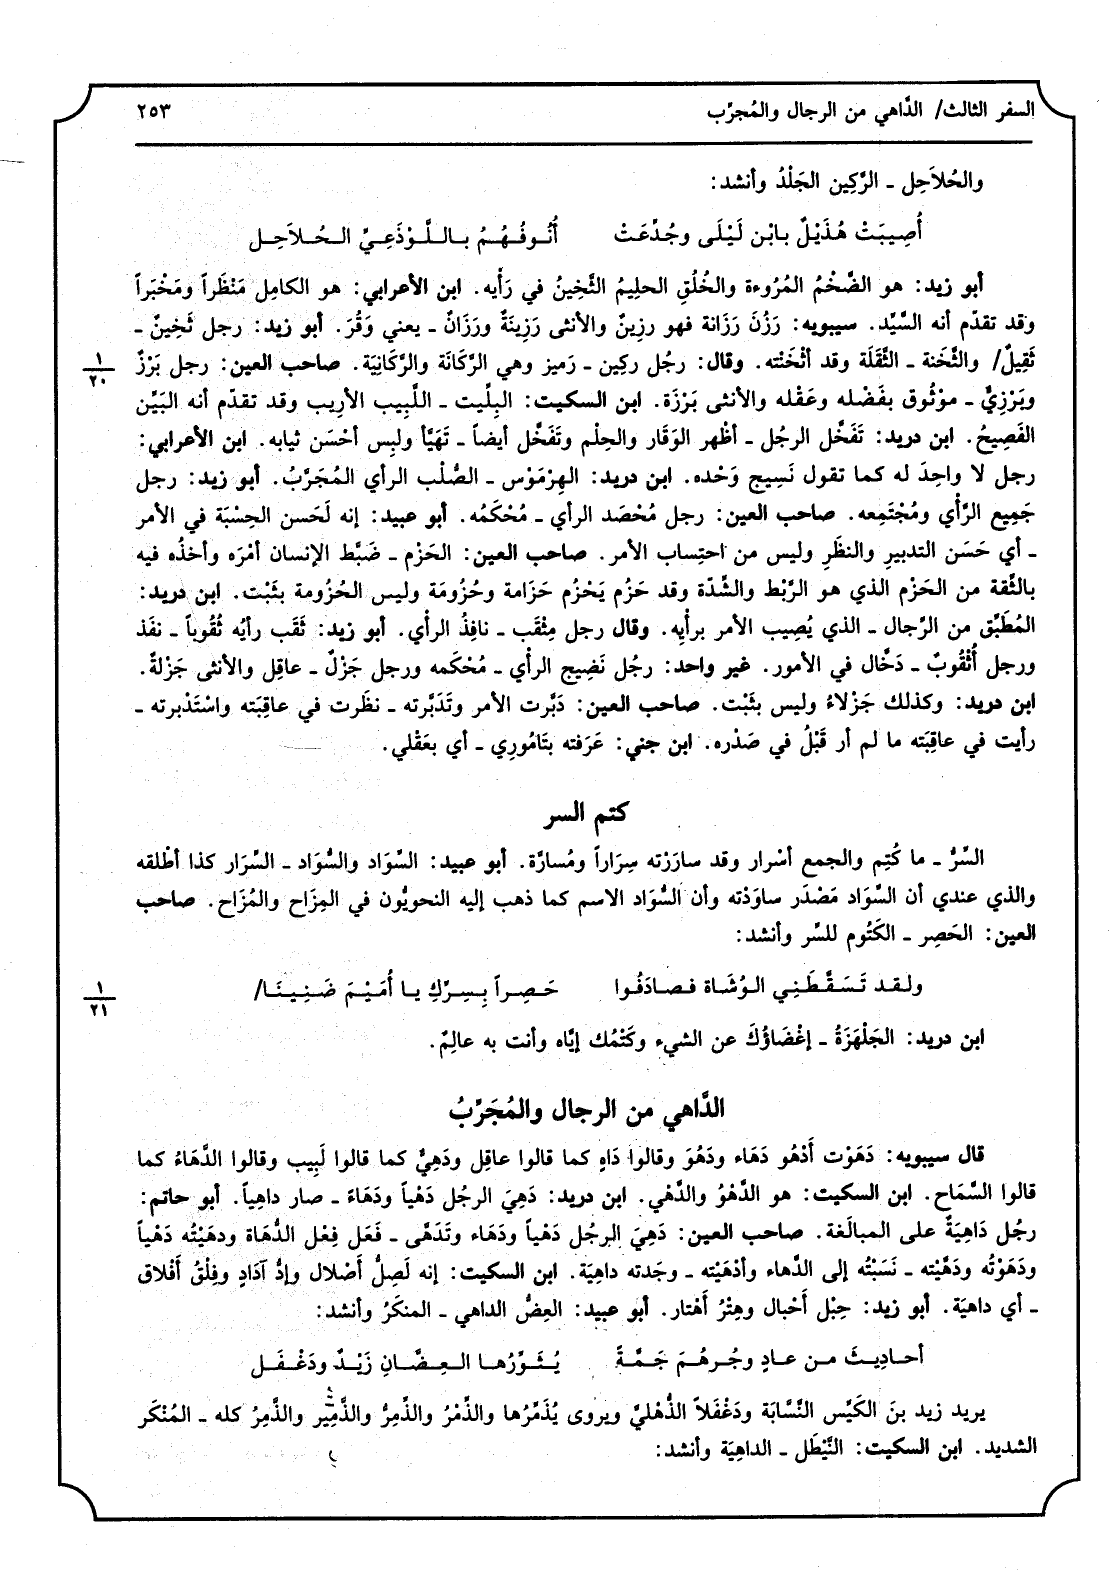 السفر الثالث/ الدَّاهي من الرجال والمُجرِّب ٢٥٣
والحُلاَحِل ـ الرَّكِين الجَلْدُ وأنشد:
أُصِيبَتْ هُذَيْلٌ بابْن لَيْلَى وجُدِّعَتْ أُنُوفُهُمُ باللَّوْذَعِيِّ الحُلاَحِل
أبو زيد: هو الضَّخْمُ المُرُوءة والخُلُقِ الحلِيمُ الثَّخِينُ في رَأْيه. ابن الأعرابي: هو الكامِل مَنْظَراً ومَخْبَراً
وقد تقدّم أنه السَّيِّد. سيبويه: رَزُنَ رَزَانة فهو رزِينٌ والأنثى رَزِينَةٌ ورَزَانٌ ـ يعني وَقُرَ. أبو زيد: رجل ثَخِينٌ ـ
ثَقِيلٌ/ والثَّخنة ـ الثَّقَلَة وقد أثْخَنْته. وقال: رجُل ركِين ـ رَميز وهي الرَّكَانَة والرَّكَانِيَة. صاحب العين: رجل بَرْزٌ
١/٢٠
وبَرْزِيٌّ ـ موْثُوق بفَضْله وعَقْله والأنثى بَرْزَة. ابن السكيت: البِلِّيت ـ اللَّبِيب الأرِيب وقد تقدّم أنه البَيِّن
الفَصِيحُ. ابن دريد: تَفَخَّل الرجُل ـ أظْهر الوَقَار والحِلْم وتَفَخَّل أيضاً ـ تَهَيَّأ ولبِس أحْسَن ثيابه. ابن الأعرابي:
رجل لا واحِدَ له كما تقول نَسِيج وَحْده. ابن دريد: الهِرْمَوْس ـ الصُّلْب الرأي المُجَرَّبُ. أبو زيد: رجل
جَمِيع الرَّأْي ومُجْتَمِعه. صاحب العين: رجل مُحْصَد الرأي ـ مُحْكَمُه. أبو عبيد: إنه لَحَسن الحِسْبَة في الأمر
ـ أي حَسَن التدبيرِ والنظَرِ وليس من احتِساب الأمر. صاحب العين: الحَزْم ـ ضَبْط الإنسان أمْرَه وأخذُه فيه
بالثِّقة من الحَزْم الذي هو الرَّبْط والشَّدّة وقد حَزُم يَحْزُم حَزَامة وحُزُومَة وليس الحُزُومة بثَبْت. ابن دريد:
المُطَبِّق من الرِّجال ـ الذي يُصِيب الأمر برأيِه. وقال رجل مِثْقَب ـ نافِذُ الرأي. أبو زيد: ثَقَب رأيُه ثُقُوباً ـ نفَذ
ورجل أُثْقُوبٌ ـ دَخَّال في الأمور. غير واحد: رجُل نَضِيج الرأي ـ مُحْكَمه ورجل جَزْلٌ ـ عاقِل والأنثى جَزْلةٌ.
ابن دريد: وكذلك جَزْلاءُ وليس بثَبْت. صاحب العين: دَبَّرت الأمر وتَدَبَّرته ـ نظَرت في عاقِبَته واسْتَدْبرته ـ
رأيت في عاقِبَته ما لم أر قَبْلُ في صَدْره. ابن جني: عَرَفته بتَامُورِي ـ أي بعَقْلي.
كتم السر
السِّرُّ ـ ما كُتِم والجمع أسْرار وقد سارَرْته سِرَاراً ومُسارَّة. أبو عبيد: السِّوَاد والسُّوَاد ـ السِّرَار كذا أطْلقه
والذي عندي أن السِّوَاد مَصْدَر ساوَدْته وأن السُّوَاد الاسم كما ذهب إليه النحويُّون في المِزَاح والمُزَاح. صاحب
العين: الحَصِر ـ الكَتُوم للسِّر وأنشد:
ولقد تَسَقَّطَنِي الوُشَاة فصادَفُوا حَصِراً بِسِرِّكِ يا أُمَيْمَ ضَنِينَا/
١/٢١
ابن دريد: الجَلْهَزَةُ ـ إغْضَاؤُكَ عن الشيء وكَتْمُك إيَّاه وأنت به عالِمٌ.
الدَّاهي من الرجال والمُجَرِّبُ
قال سيبويه: دَهَوْت أَدْهُو دَهَاء ودَهُوَ وقالوا دَاهٍ كما قالوا عاقِل ودَهِيٌّ كما قالوا لَبِيب وقالوا الدَّهَاءُ كما
قالوا السَّمَاح. ابن السكيت: هو الدَّهْوُ والدَّهْي. ابن دريد: دَهِيَ الرجُل دَهْياً ودَهَاءً ـ صار داهِياً. أبو حاتم:
رجُل دَاهِيَةٌ على المبالَغة. صاحب العين: دَهِيَ الرجُل دَهْياً ودَهَاء وتَدَهَّى ـ فَعَل فِعْل الدُّهَاة ودهَيْتُه دَهْياً
ودَهَوْتُه ودَهَّيْته ـ نَسَبْتُه إلى الدَّهاء وأدْهَيْته ـ وجَدته داهِيَة. ابن السكيت: إنه لَصِلُّ أَصْلال وإدُّ آدَادٍ وفِلْقُ أَفْلاق
ـ أي داهيَة. أبو زيد: حِبْل أَحْبال وهِتْرُ أَهْتار. أبو عبيد: العِضُّ الداهي ـ المنكَرُ وأنشد:
أحاديثَ من عادٍ وجُرهُمَ جَمَّةً يُثَوِّرُها العِضَّانِ زَيْدٌ ودَغْفَل
يريد زيد بنَ الكَيِّس النَّسَّابَة ودَغْفَلاً الذُّهْليَّ ويروى يُذَمِّرُها والذِّمْرُ والذِّمِرُّ والذَّمِير والذَّمِرُ كله ـ المُنْكَر
الشديد. ابن السكيت: النَّيْطَل ـ الداهِيَة وأنشد: